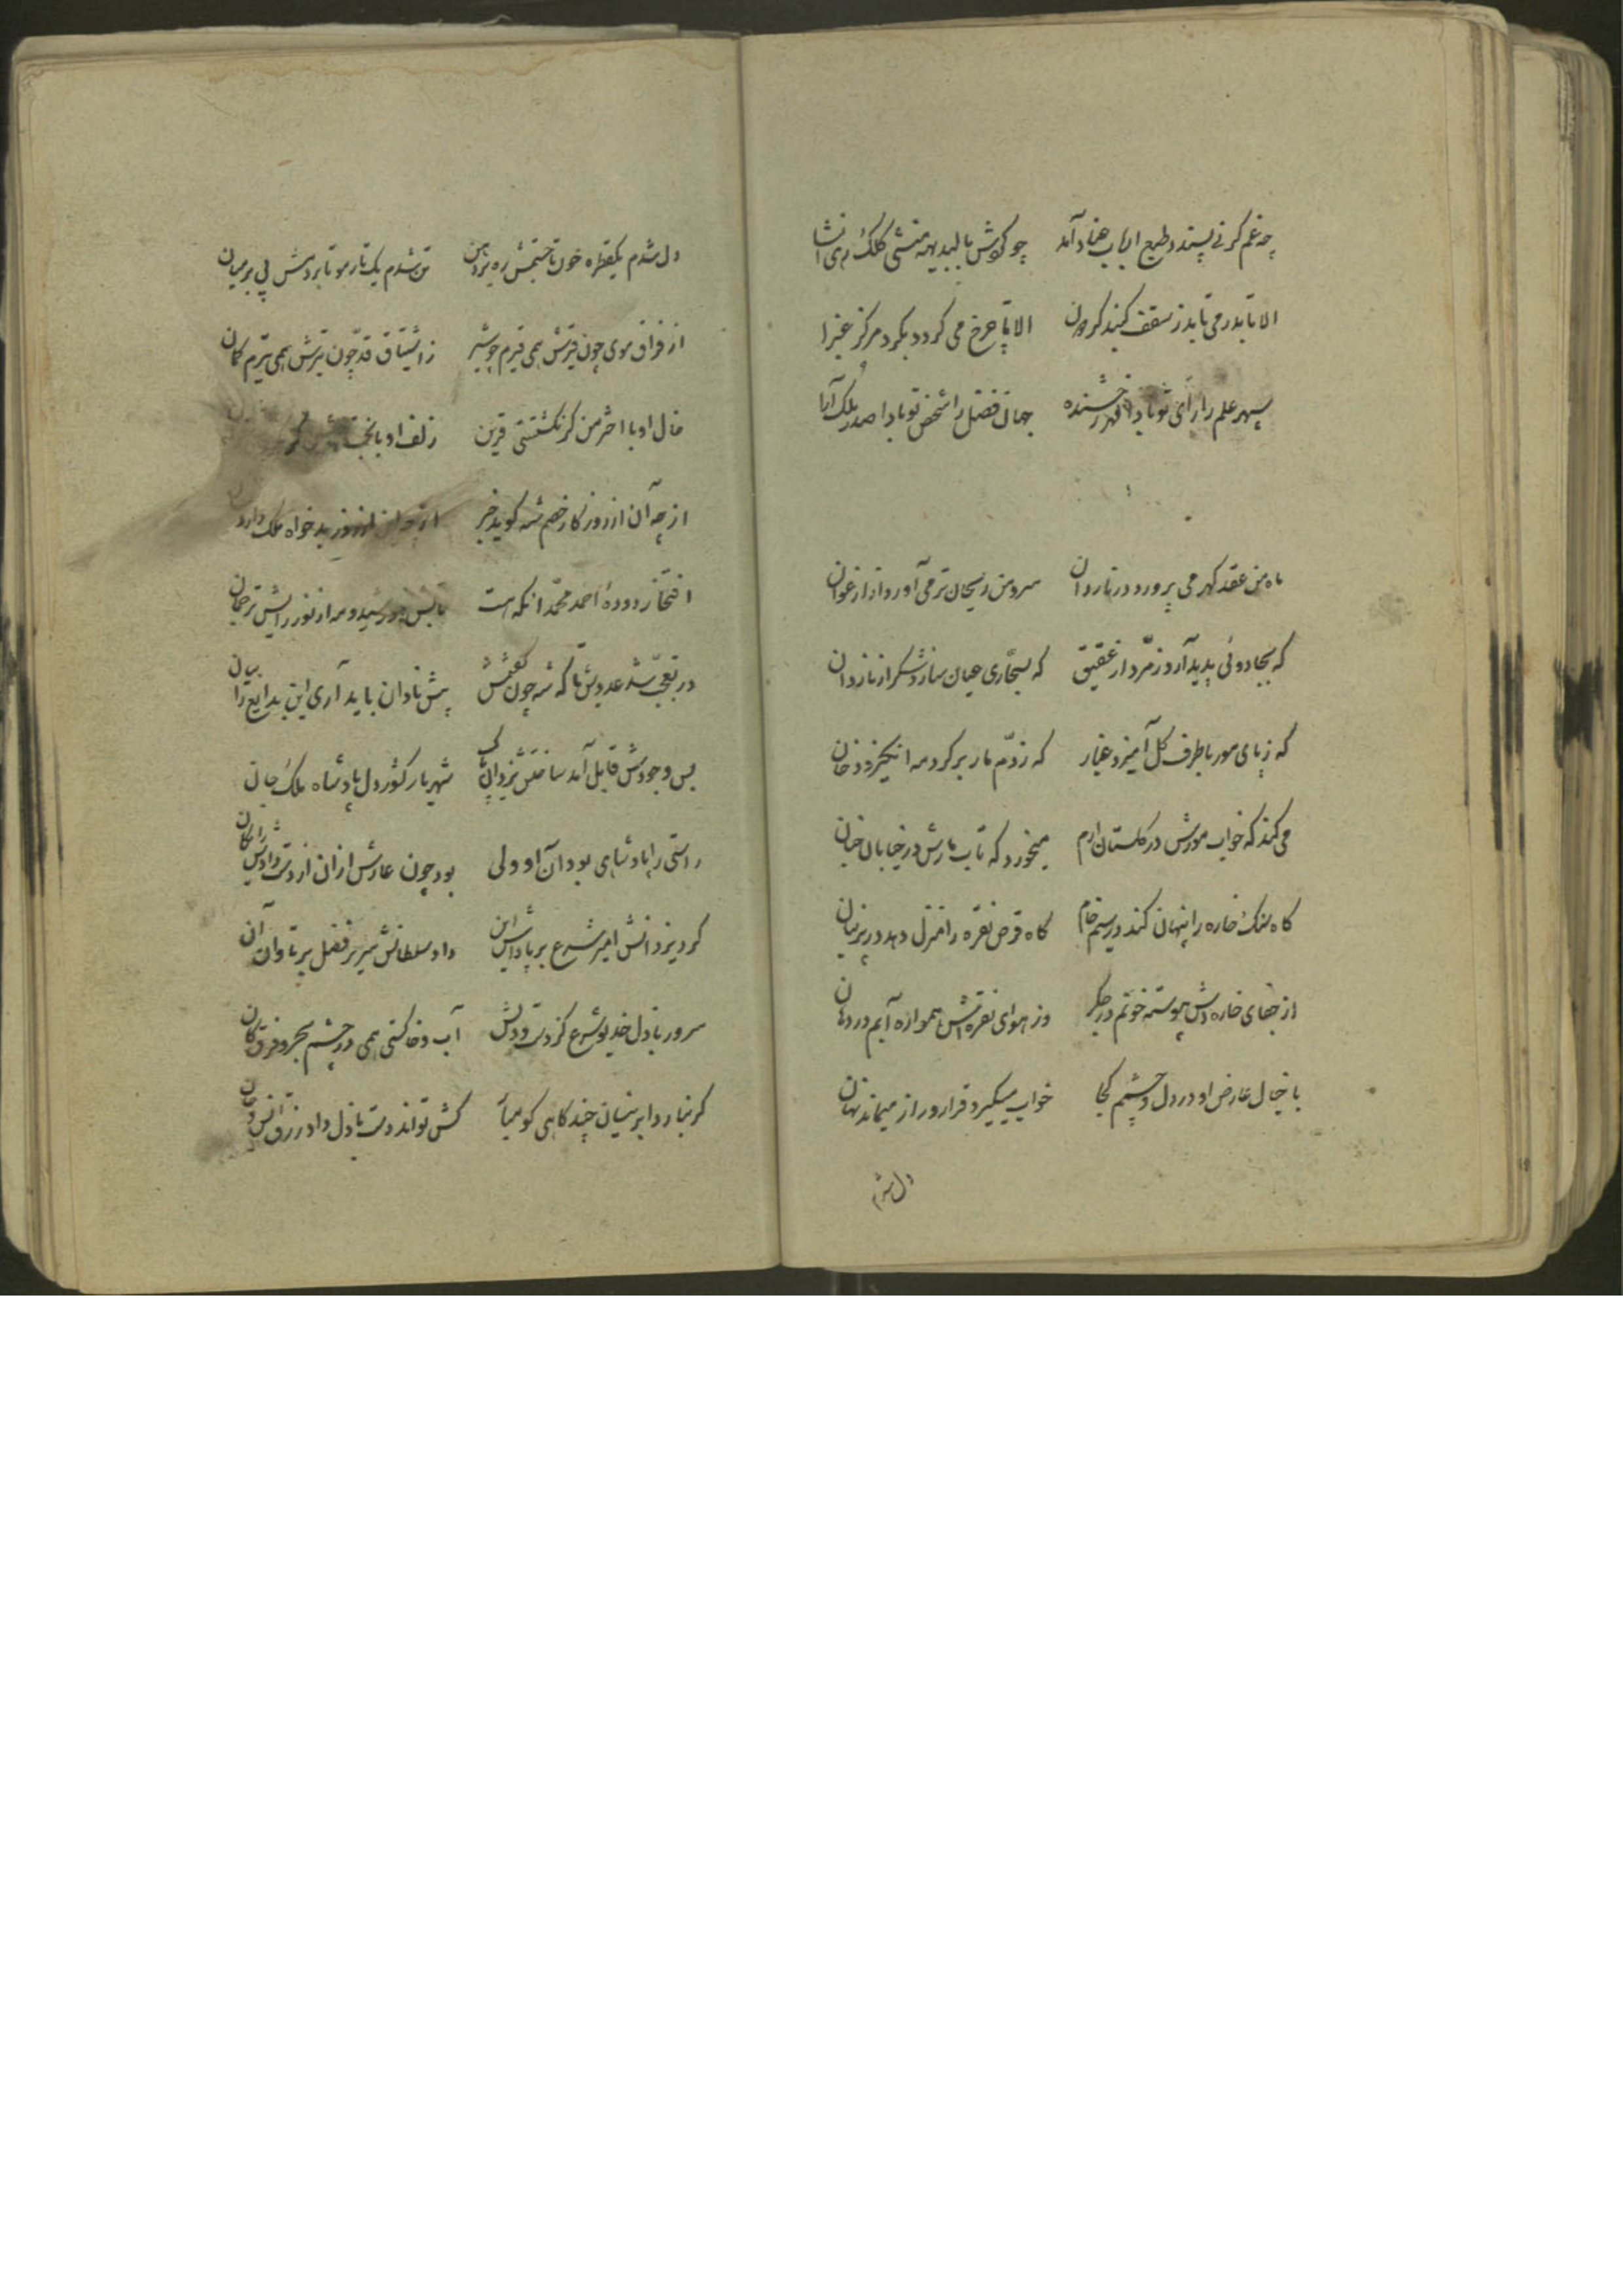 چه غم کر نی پسندد طبع ارباب عناد آمد چو کوش بالبدیهه منشی کلک من انشا
الا تا بدر می تابد ز سقف کنبد کردون الا تا چرخ می کردد بکرد مرکز غبرا
سپهر علم را رای تو بادا مهر رخشنده جهان فضل را شخص تو بادا صدر ملک آرا
ماه من عقد کهر می پرورد در ناردان سرو من ریحان تر می آورد از ارغوان
که بجادوئی پدید آرد زمرد از عقیق که بسحاری عیان سازد شکر از ناردان
که ز پای مور با طرف کل آمیزد غبار که ز دم مار بر کرد مه انکیزد دخان
می کند که خواب مورش در کلستان ارم میخورد که تاب مارش در خیابان جنان
کاه سنک خاره را پنهان کند در سیم خام کاه قرص نقره را منزل دهد در پرنیان
از جفای خاره اش پیوسته خونم در جکر وز هوای نقره اش همواره آبم در دهان
با خیال عارض او در دل و چشمم کجا خواب میکیرد قرار و راز میماند نهان
دل شدم
دل شدم یکقطره خون تا چشمش ره بزد تن شدم یک تار مو تا بردمش پی بر میان
از فراق موی چون قیرش همی قیرم چو شیر ز اشتیاق قد چون تیرش همی تیرم کمان
خال او با اختر من کر نکشتستی قرین زلف او با بخت
از چه آن از روز کار خصم شه کوید خبر از چه این از روز بد خواه ملک دارد
افتخار دوده احمد محمد انکه هست تابش خورشید و مه از نور رایش ترجمان
در تعجب شد عدویش تا که شه چون کفتمش پیش نادان باید آری این بدایع را بیان
بس وجودش قابل آمد ساختش یزدان شهریار کشور دل پادشاه ملک جان
راستی را پادشاهی بود آن او ولی بود چون عارش از ان از دست دادش رایکان
کرد یزدانش امیر شرع بر پاداش این داد سلطانش سریر فضل بر تاوان آن
سرور باذل خدیو شرع کز دست و دلش آب و خاکستی همی در چشم بحر و فرق کان
کر نبارد ابر نیسان چند کاهی کو مبار کش تواند دست باذل داد رزق انس و جان